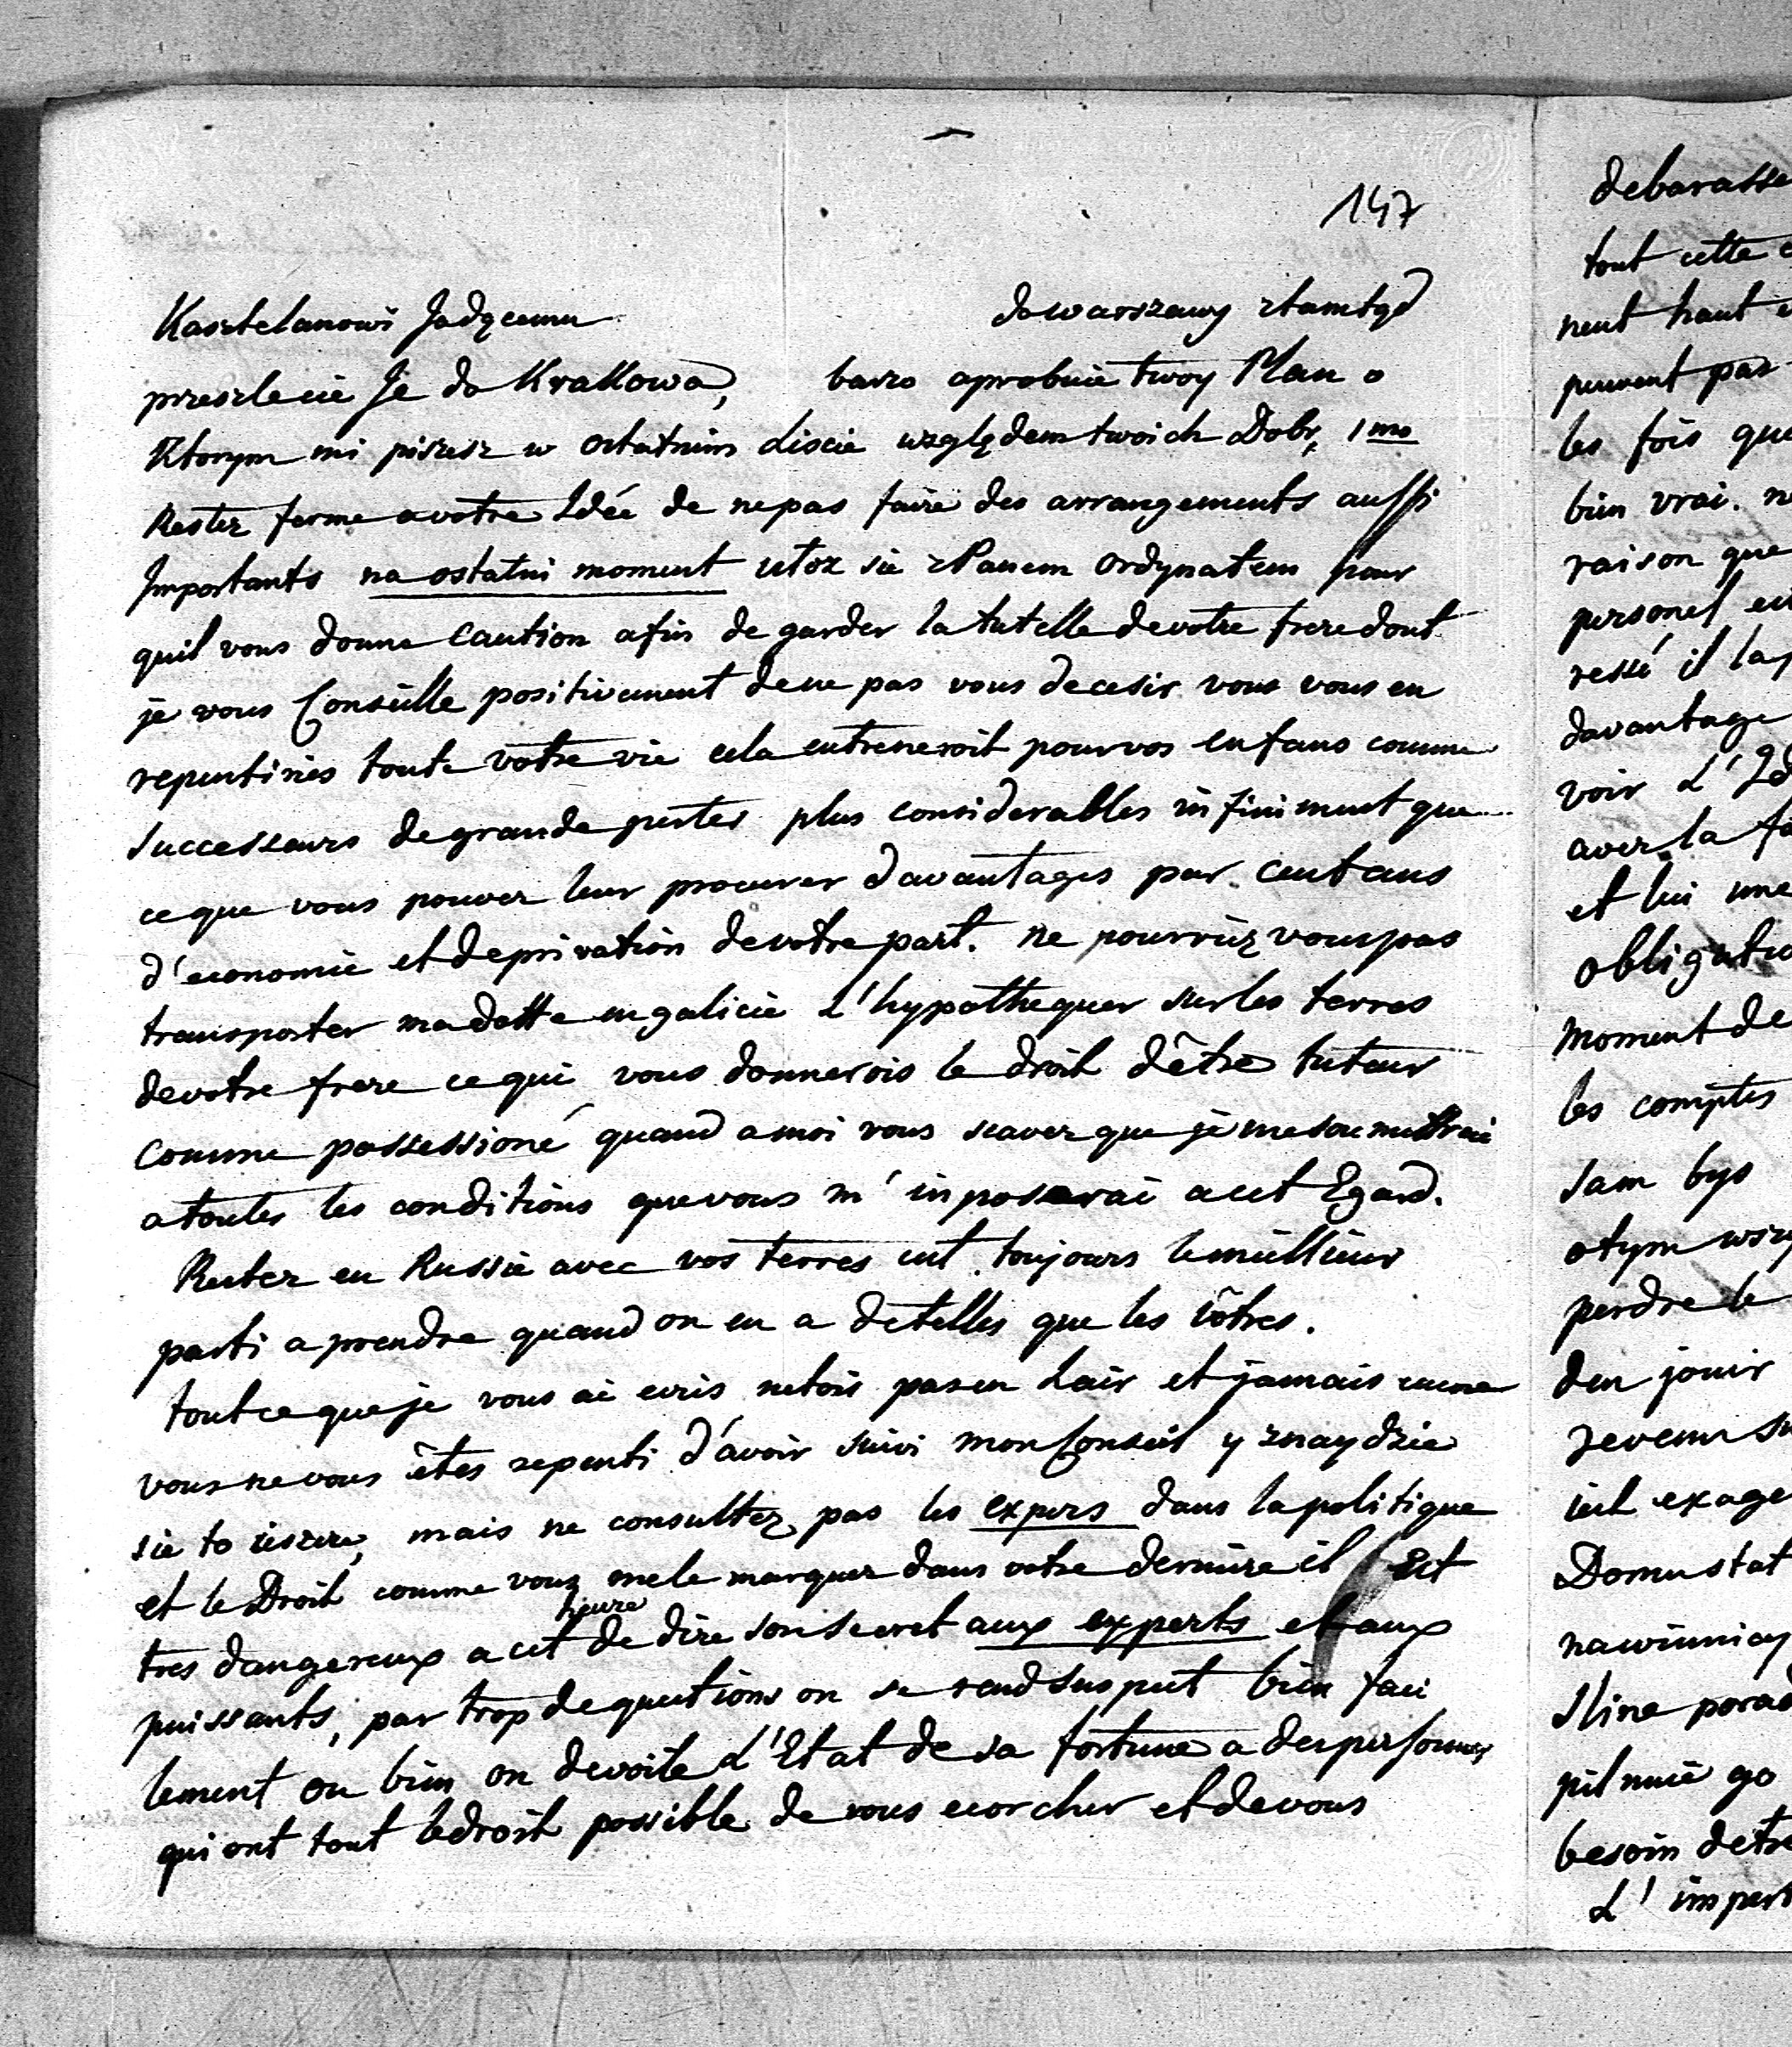 147
Kasztelanowi Jadącemu do warszawy ztamtąd
przeszlecie Je do Krakowa, barzo aprobuie twoy Plan o
Ktorym mi piszesz w ostatnim Liscie względem twoich Dobr, 1mo
Restez ferme a votre Idée de ne pas faire des arrangements aussi
Importants na ostatni moment utoz sie z Panem Ordynatem pour
quil vous donne Caution afin de garder la tutelle de votre frere dont
je vous Conseille positivement de ne pas vous decesir vous vous en
repentiries toute votre vie cela entreneroit pour vos enfans comme
successeurs de grande pertes plus considerables infiniment que
ce que vous pouvez leur procurer davantages par cent ans
d'economie et de privation de votre part. ne pourriez vous pas
transporter ma dette en galicie L'hypothequer sur les terres
de votre frere ce qui vous donnerois le droit d'être tuteur
comme possessioné quand a moi vous scavez que je me soumettrai
a toutes les conditions que vous m'imposerai a cet Egard.
Rester en Russie avec vos terres est toujours le meillieur
parti a prendre quand on en a de telles que les vôtres.
tout ce que je vous ai ecris netois pas en Lair et jamais encore
vous ne vous êtes repenti d'avoir suivi mon Conseil y znaydzie
sie to ieszcze, mais ne consultez pas les expers dans la politique
et le Droit comme vous me le marquez dans votre derniere il Est
tres dangereux a cet heure de dire son secret aux experts et aux
puissants, par trop de questions on se rend suspect bien faci
lement ou bien on devoile L'Etat de sa fortune a des personnes
qui ont tout le droit possible de vous ecorcher et de vous
debarasse
tout cette
nent haut
peuvent pas
les fois que
bien vrai.
raison que
personel
ressé il la
davantage
voir L'Id
avez la
et lui une
obligatio
moment de
les comptes
Sam bys
otym wszy
perdre le
den jouir
revenu
iest exage
Domu stat
nawinnicy
Sline porad
pilnuie go
besoin detre
L'impert